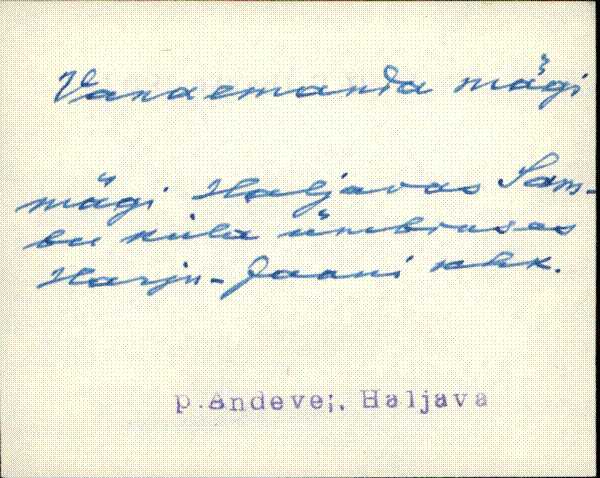 Vanaemanda mägi
mägi Haljavas Sam-
bu küla ümbruses
Harju-Jaani khk.
p.Andevei, Haljava